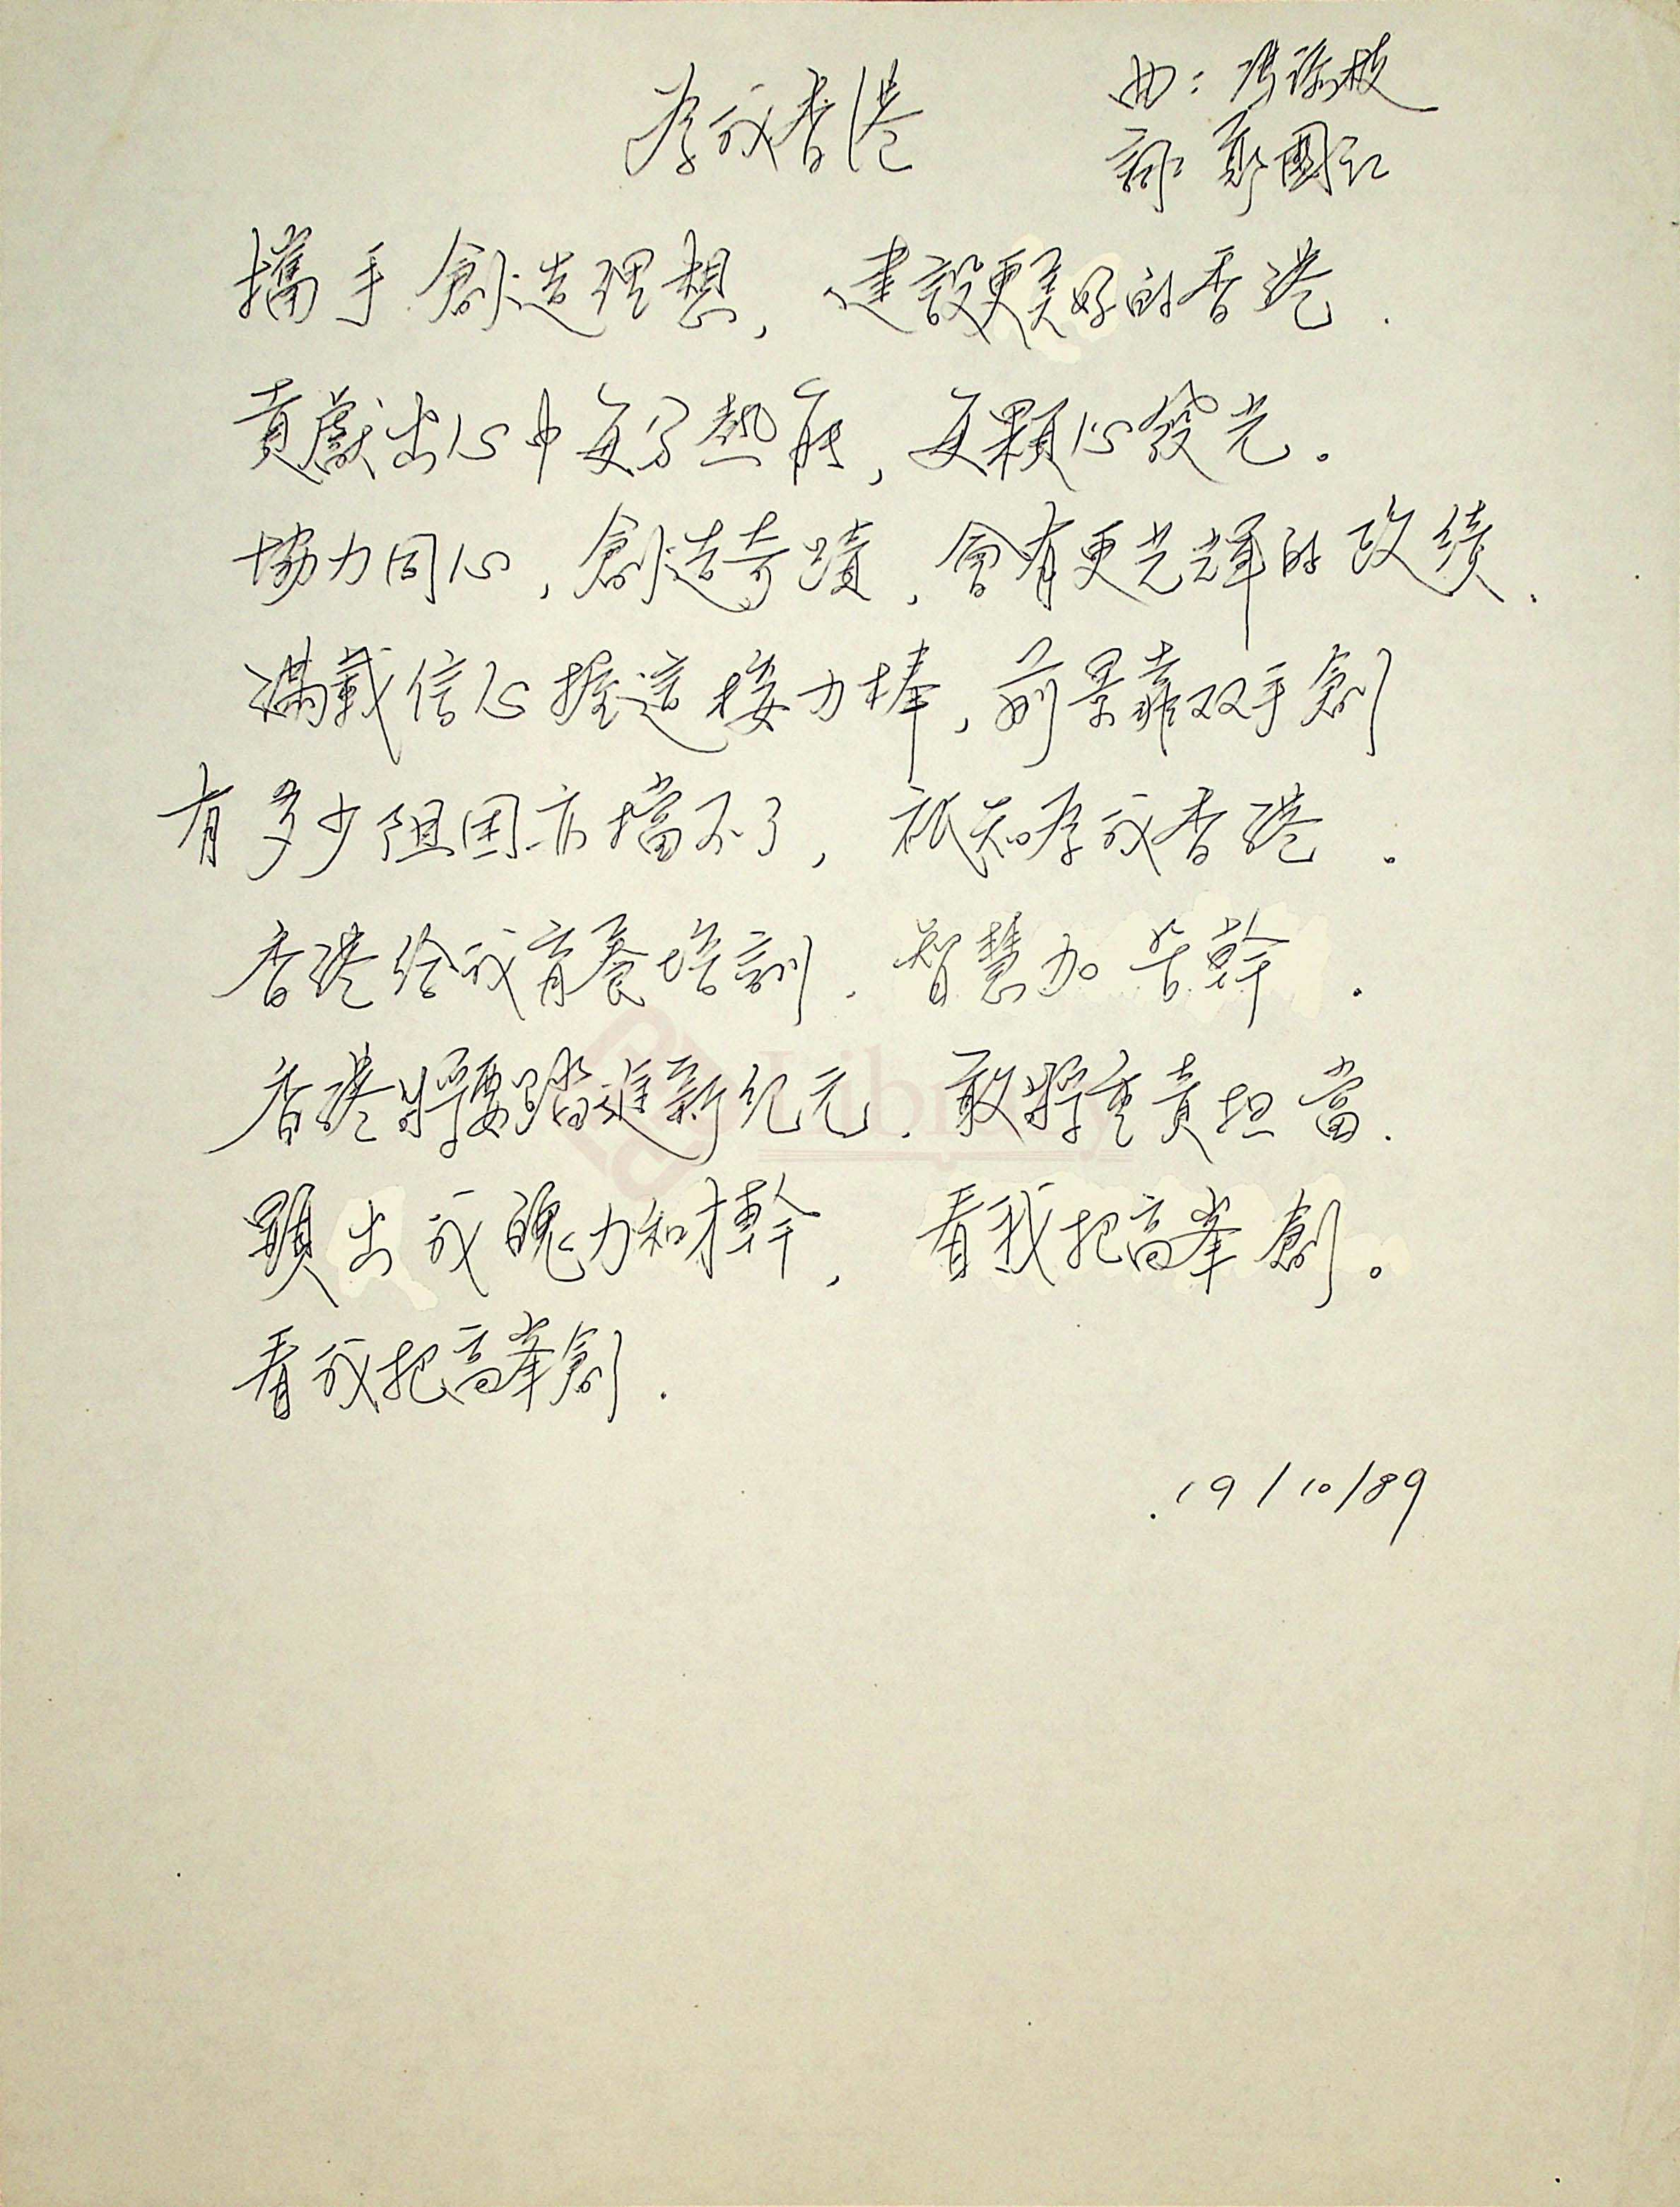 為我香港
曲：馮添枝
詞：鄭國江
攜手創造理想，建設更美好的香港．
貢獻出心中每分熱能，每顆心發光。
協力同心，創造奇蹟，會有更光輝的政績．
滿載信心握這接力棒，前景靠双手創
有多少阻困亦擋不了，祇知為我香港。
香港給我育養培訓．智慧加苦幹．
香港將要踏進新紀元．敢將重責担當．
顯出我魄力和樣幹，看我把高峯創。
看我把高峯創．
19/10/89
Library